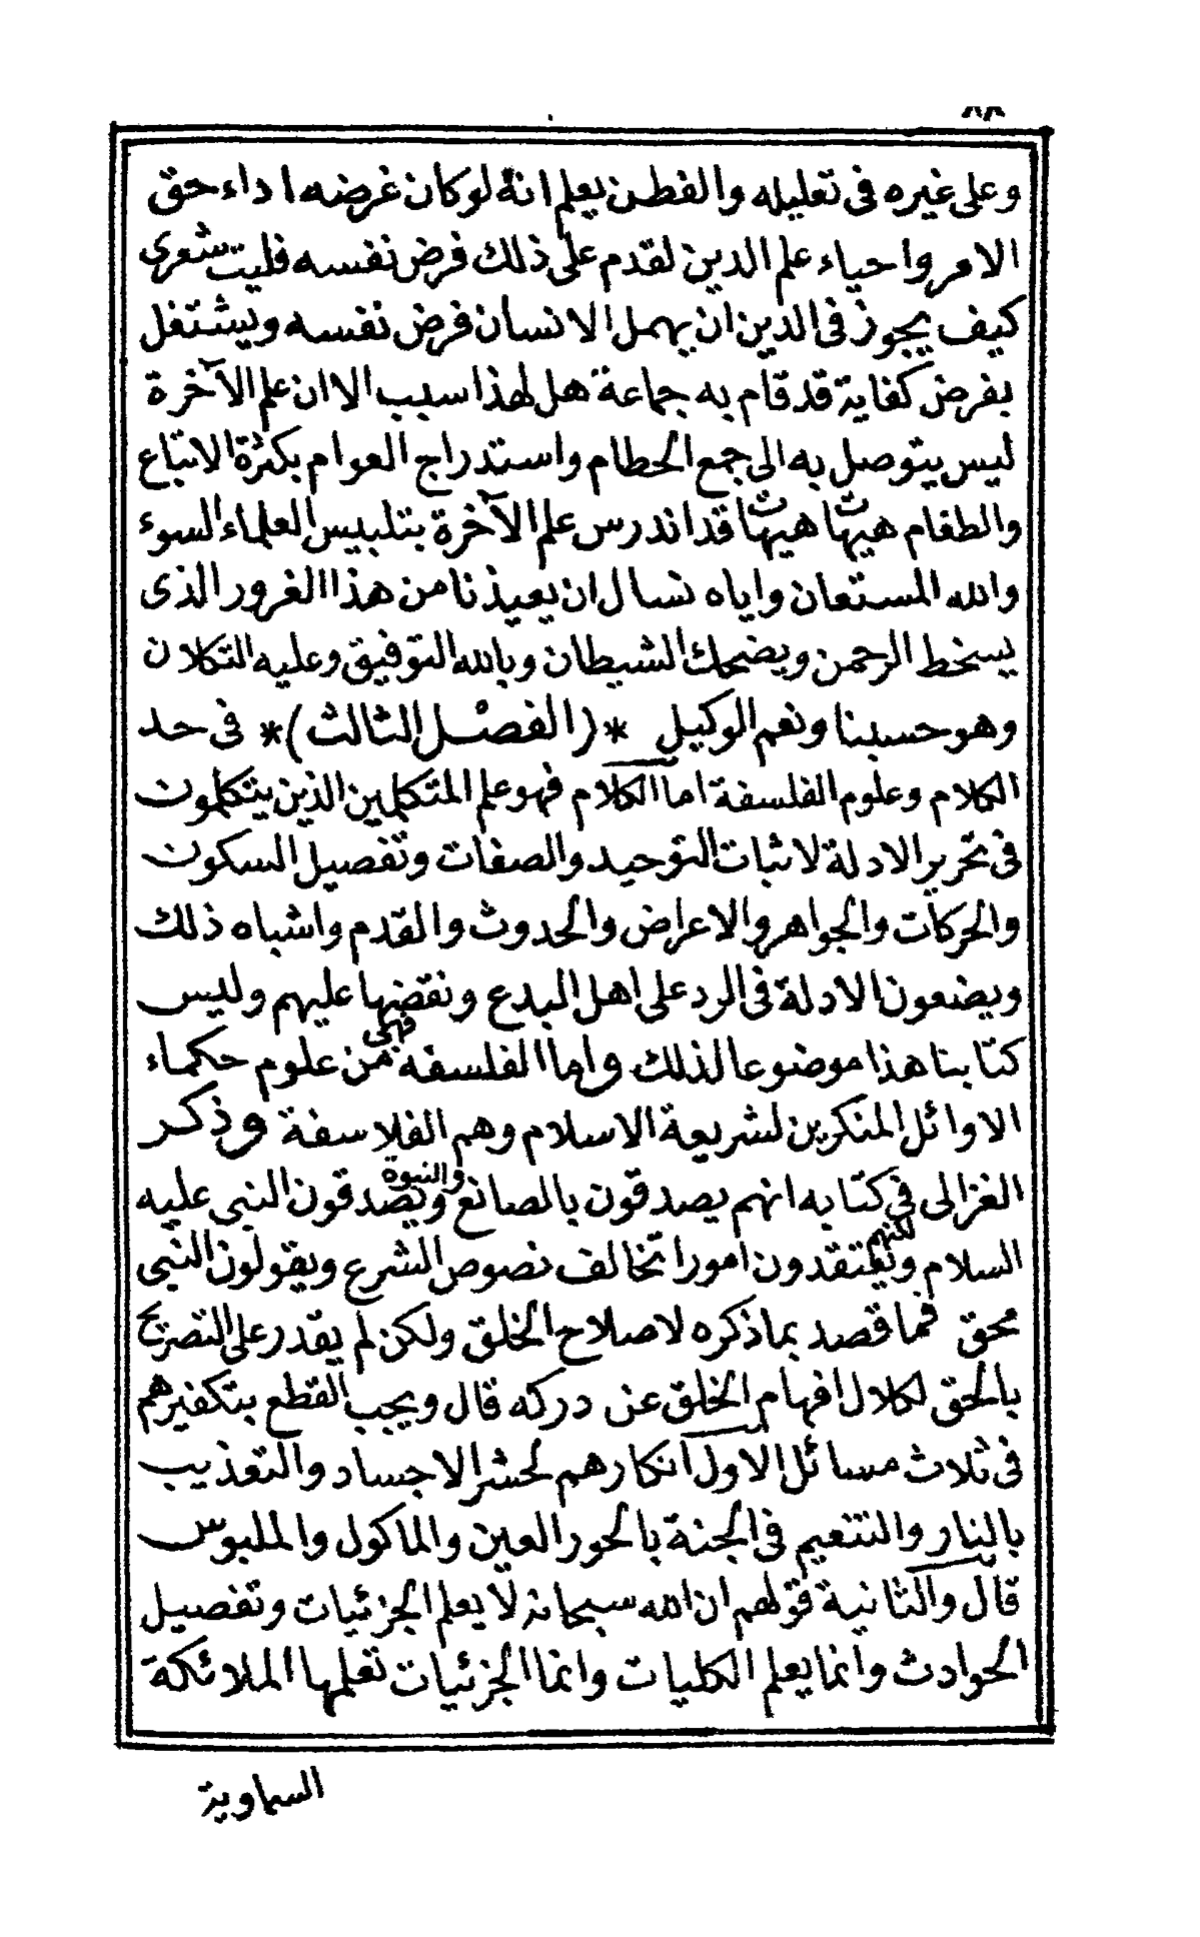 ٨٨
وعلى غيره فى تعليله والفطن يعلم انه لوكان غرضه اداء حق
الامر واحياء علم الدين لقدم على ذلك فرض نفسه فليت شعرى
كيف يجوز فى الدين ان يهمل الانسان فرض نفسه ويشتغل
بفرض كفاية قد قام به جماعة هل لهذا سبب الا ان علم الآخرة
ليس يتوصل به الى جمع الحطام واستدراج العوام بكثرة الاتباع
والطغام هيهات هيهات قد اندرس علم الآخرة بتلبيس العلماء السوء
والله المستعان واياه نسال ان يعيذنا من هذا الغرور الذى
يسخط الرحمن ويضحك الشيطان وبالله التوفيق وعليه التكلان
وهو حسبنا ونعم الوكيل *(الفصل الثالث)* فى حد
الكلام وعلوم الفلسفة اما الكلام فهو علم المتكلمين الذين يتكلمون
فى تحرير الادلة لاثبات التوحيد والصفات وتفصيل السكون
والحركات والجواهر والاعراض والحدوث والقدم واشباه ذلك
ويضعون الادلة فى الرد على اهل البدع ونقضها عليهم وليس
كتابنا هذا موضوعا لذلك واما الفلسفة فهى من علوم حكماء
الاوائل المنكرين لشريعة الاسلام وهم الفلاسفة وذكر
الغزالى فى كتابه انهم يصدقون بالصانع والنبوة ويصدقون النبى عليه
السلام لكنهم ويعتقدون امورا تخالف نصوص الشرع ويقولون النبى
محق فما قصد بما ذكره لاصلاح الخلق ولكن لم يقدر على التصريح
بالحق لكلال افهام الخلق عن دركه قال ويجب القطع بتكفيرهم
فى ثلاث مسائل الاول انكارهم لحشر الاجساد والتعذيب
بالنار والتنعيم فى الجنة بالحور العين والماكول والملبوس
قال والثانية قولهم ان الله سبحانه لا يعلم الجزئيات وتفصيل
الحوادث وانما يعلم الكليات وانما الجزئيات تعلمها الملائكة
السماوية